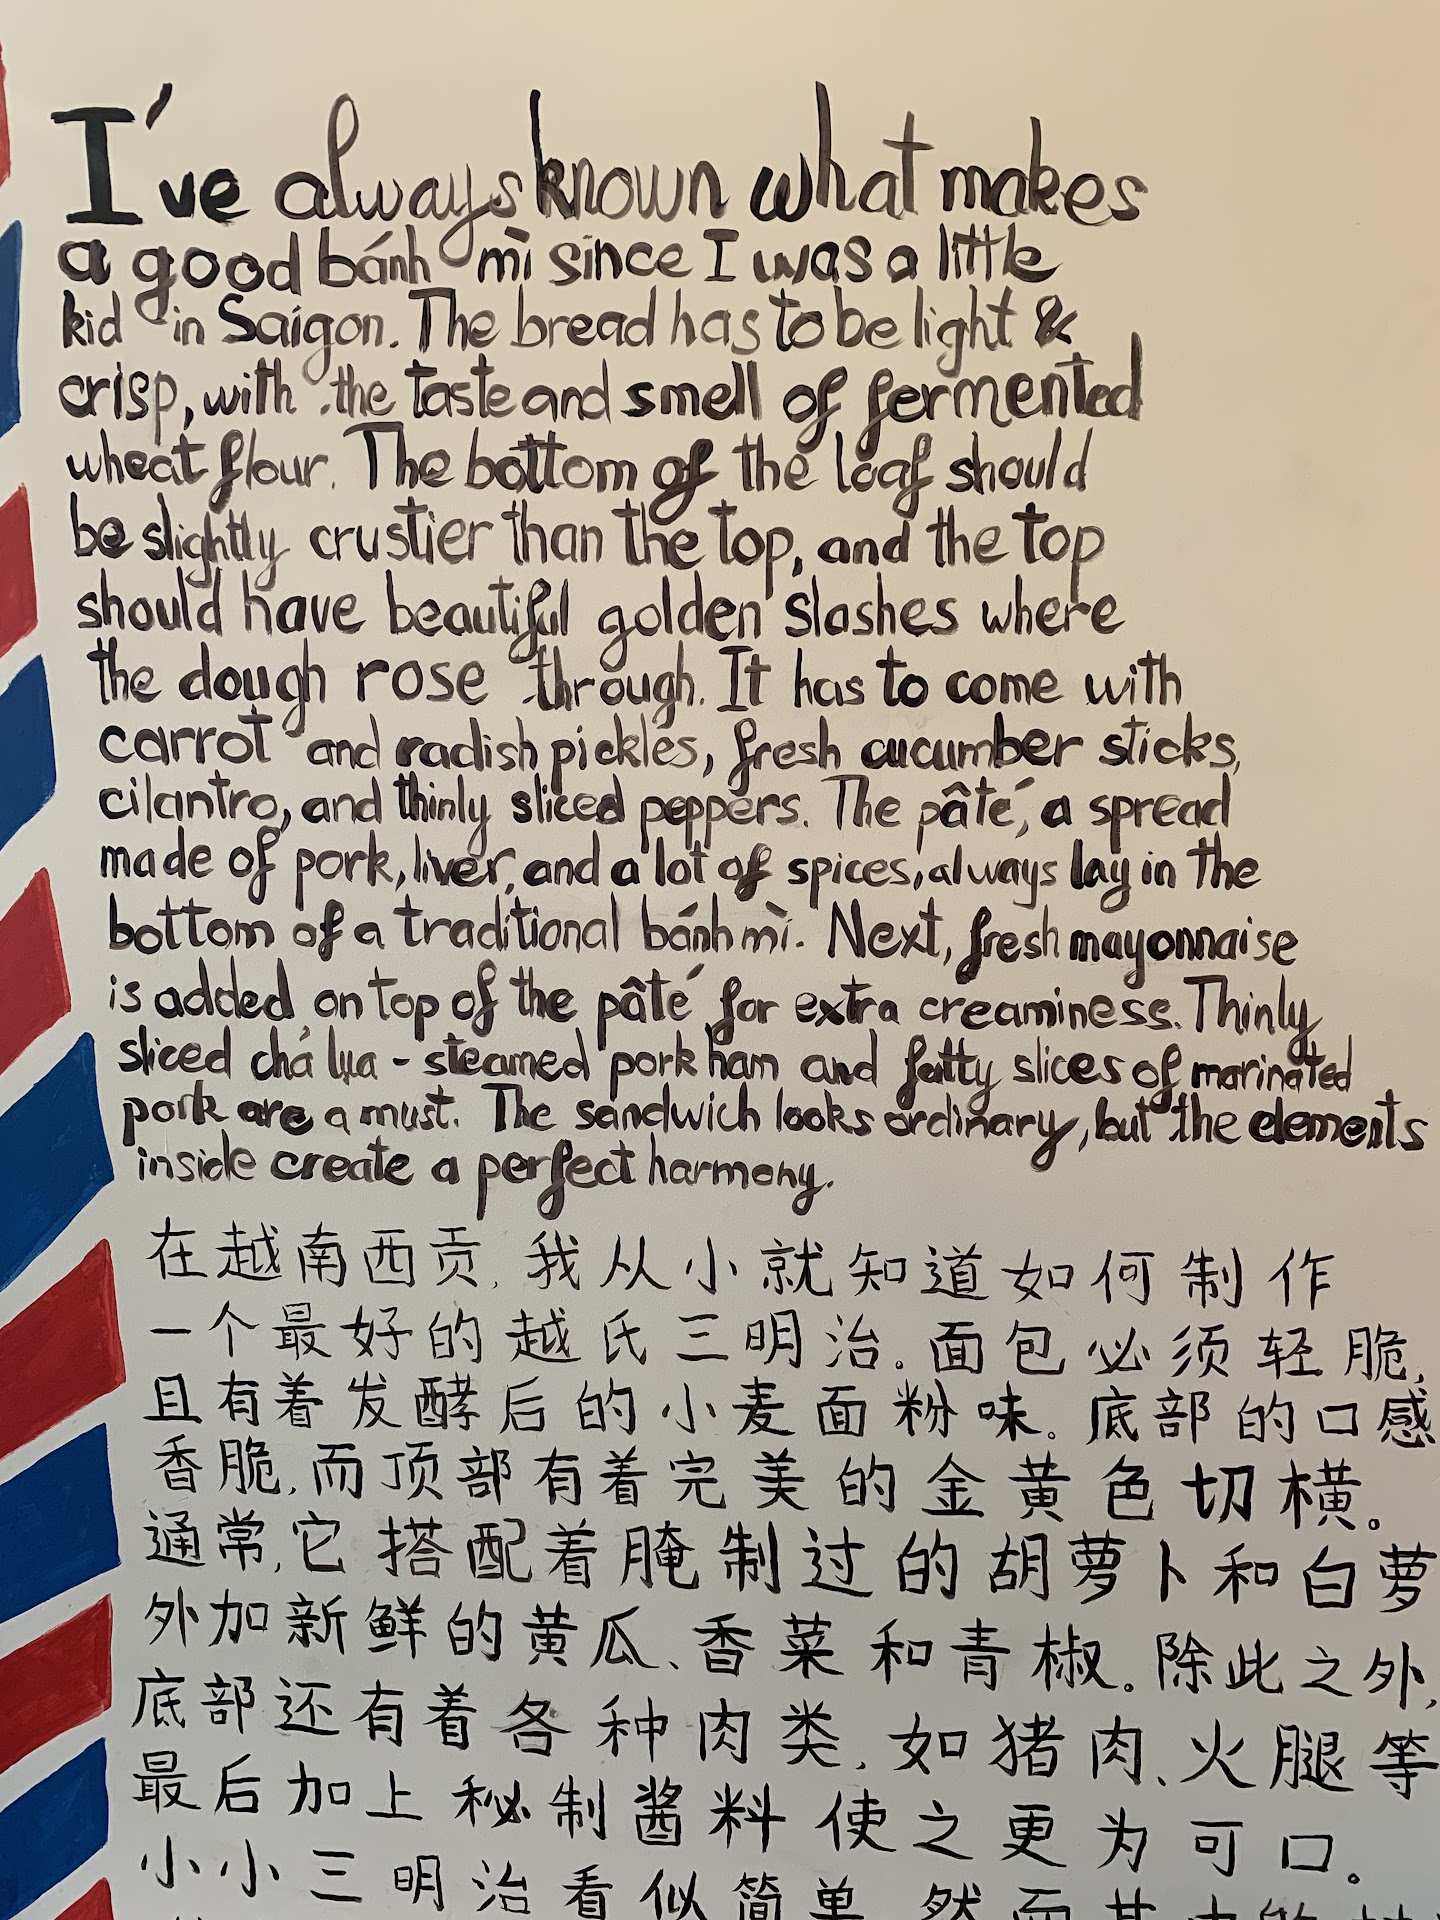 I've always known what makes
a good bánh mì since I was a little
kid in Saigon. The bread has to be light &
crisp, with the taste and smell of fermented
wheat flour. The bottom of the loaf should
be slightly crustier than the top, and the top
should have beautiful golden slashes where
the dough rose through. It has to come with
carrot and radish pickles, fresh cucumber sticks,
cilantro, and thinly sliced peppers. The pâté, a spread
made of pork, liver, and a lot of spices, always lay in the
bottom of a traditional bánh mì. Next, fresh mayonnaise
is added on top of the pâté for extra creaminess. Thinly
sliced chả lụa - steamed pork ham and fatty slices of marinated
pork are a must. The sandwich looks ordinary, but the elements
inside create a perfect harmony.
在越南西贡,我从小就知道如何制作
一个最好的越氏三明治。面包必须轻脆,
且有着发酵后的小麦面粉味。底部的口感
香脆,而顶部有着完美的金黄色切横。
通常,它搭配着腌制过的胡萝卜和白萝
外加新鲜的黄瓜、香菜和青椒。除此之外,
底部还有着各种肉类,如猪肉、火腿等
最后加上秘制酱料使之更为可口。
小小三明治看似简单,然而其中